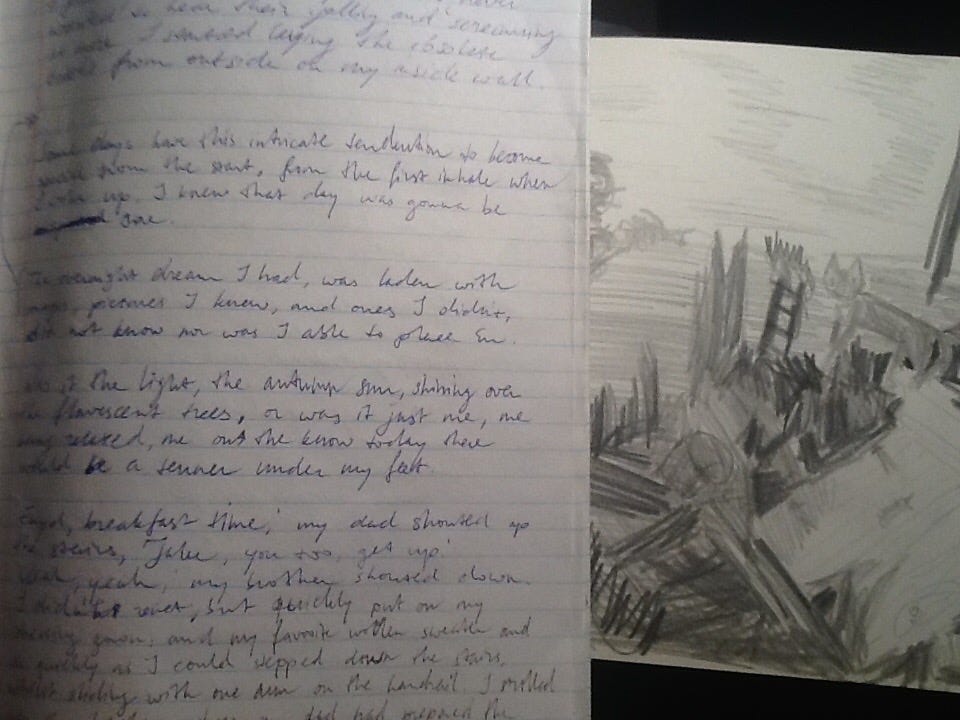 never
to hear their yelling and screaming
I started laying the obsolete
from outside on my inside wall.
Some days have this intricate tendention to become
from the start, from the first inhale when
up. I knew that day was gonna be
one.
dream I had, was laden with
pictures I knew, and ones I didn't,
did not know nor was I able to place em.
it the light, the autumn sun, shining over
flavescent trees, or was it just me, me
relaxed, me out the know today there
would be a tenner under my feet.
breakfast time,' my dad shouted up
the stairs, 'Jake, you too, get up.'
yeah,' my brother shouted down.
I didn't react, but quickly put on my
gown, and my favorite wollen sweater and
as quickly as I could stepped down the stairs,
whilst sliding with one arm on the handrail. I
dad had prepared the